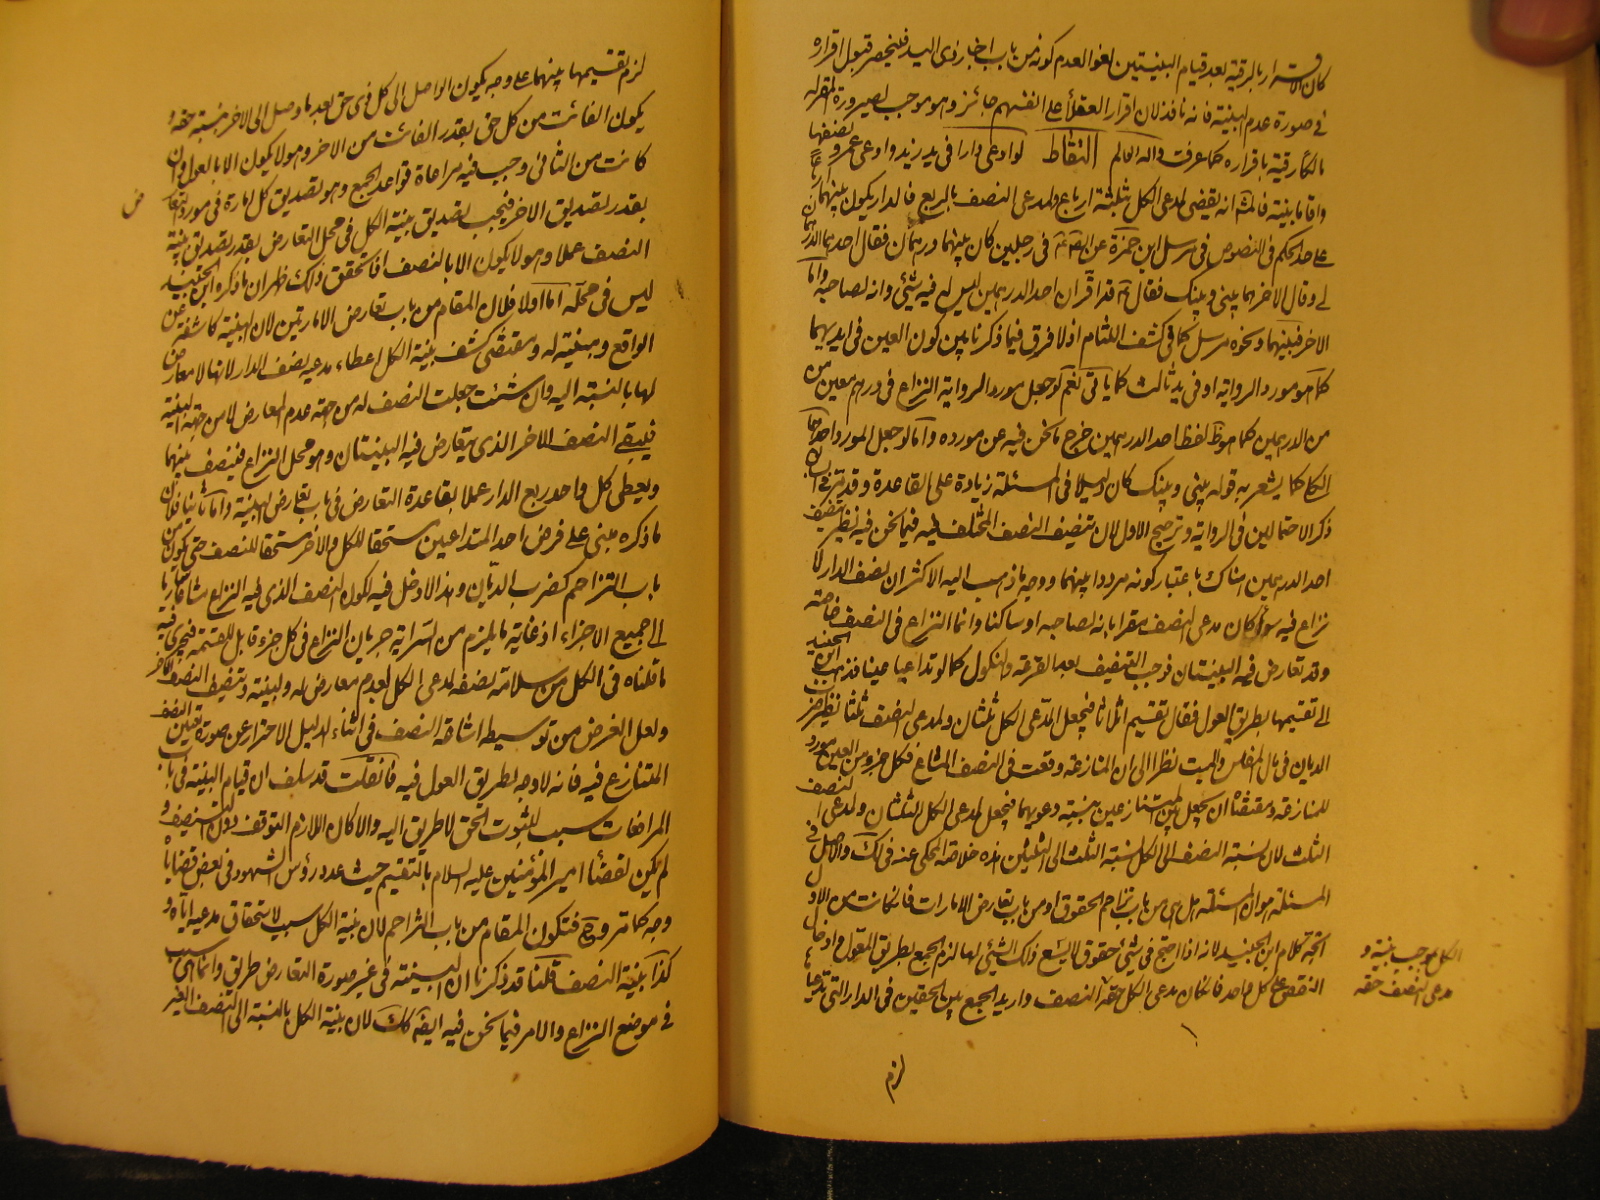 كان الاقرار بالرقية بعد قيام البينتين لغوا لعدم كونه من باب اخبار ذى اليد فلينحصر قبول اقراره
فى صورة عدم البينة فانه نافذ لان اقرار العقلاء على انفسهم جائز وهو موجب لصيرورة المقر له
مالكا رقية باقراره كما عرفت والله العالم التقاط لو ادعى دارا فى يد زيد وادعى عمرو نصفها
واقاما بينة فالمش انه يقضى لمدعى الكل بثلثة ارباع ولمدعى النصف بالربع فالدار يكون بينهما
على حد الحكم فى النصوص فى مرسل ابن حمزة عن فى رجلين كان بينهما درهمان فقال احدهما الدرهمان
لى وقال الاخر هما بينى وبينك فقال قد اقر ان احد الدرهمين ليس له فيه شئ وانه لصاحبه واما
الاخر فبينهما ونحوه مرسل كما فى كشف اللثام اذ لا فرق فيما ذكرنا بين كون العين فى ايديهما
كما هو مورد الرواية او فى يد ثالث كما ياتى نعم لو جعل مورد الرواية النزاع فى درهم معين من
من الدرهمين كما هو ظ لفظ احد الدرهمين خرج ما نحن فيه عن مورده واما لو جعل المورد احدهما
الكل كما يشعر به قوله بينى وبينك كان دليلا فى المسئلة زيادة على القاعدة وقد
ذكر الاحتمالين فى الرواية وترجيح الاول لان تنصيف النصف المختلف فيه فيما نحن فيه نظير تنصيف
احد الدرهمين هناك باعتبار كونه مرددا بينهما ووجه ما ذهب اليه الاكثر ان نصف الدار لا
نزاع فيه سواء كان مدعى النصف مقرا بانه لصاحبه او ساكتا وانما النزاع فى النصف خاصة
وقد تعارض فيه البينتان فوجب التنصيف بعد القرعة والنكول كما لو تداعيا عينا فذهب ابن الجنيد
الى تقسيمها بطريق العول فقال تقسيم اثلاثا فيجعل لمدعى الكل ثلثان ولمدعى النصف ثلثا نظير ضرب
الديان فى مال المفلس والميت نظرا الى ان المنازعة وقعت فى النصف المشاع فكل جزء من العين مورد
للمنازعة ومقتضاه ان يجعل بين المتنازعين بنسبة دعويهما فيجعل لمدعى الكل الثلثان ولمدعى النصف
الثلث لان نسبة النصف الى الكل نسبة الثلث الى الثلثين هذه خلاصة المحكى عنه فى لك والاصل فى
المسئلة هو ان المسئلة هل هى من باب تزاحم الحقوق او من باب تعارض الامارات فان كانت من الاول
اتجه كلام ابن الجنيد لانه اذا اجتمع فى شئ حقوق لا يسع ذلك الشئ لها لزم الجمع بطريق العول وادخال
النقص على كل واحد فان كان مدعى الكل حقه النصف واريد الجمع بين الحقين فى الدار التى
الكل بموجب بينة و
مدعى النصف حقه
لزم
لزم تقسيمها بينهما على وجه يكون الواصل الى كل ذى حق بعد ما وصل الى الاخر بنسبة حقه و
يكون الفائت من كل حق بقدر الفائت من الاخر وهو لا يكون الا بالعول وان
كانت من الثانى وجب فيه مراعاة قواعد الجمع وهو تصديق كل امارة فى مورد التعارض
بقدر تصديق الاخر فيجب تصديق بينة الكل فى محل التعارض بقدر تصديق بينة
النصف عملا وهو لا يكون الا بالنصف اذا تحقق ذلك ظهر ان ما ذكره ابن الجنيد
ليس فى محله اما اولا فلان المقام من باب تعارض الامارتين لان البينة كاشفة عن
الواقع ومبينة له ومقتضى كشف بينة الكل اعطاء مدعيه نصف الدار لانها لا معارض
لها بالنسبة اليه وان شئت جعلت النصف له من جهة عدم المعارض لا من جهة البينة
فيبقى النصف الاخر الذى يتعارض فيه البينتان وهو محل النزاع فينصف بينهما
ويعطى كل واحد ربع الدار عملا بقاعدة التعارض فى باب تعارض البينة واما ثانيا فلان
ما ذكره مبنى على فرض احد المتداعيين مستحقا للكل والاخر مستحقا للنصف حتى يكون من
باب التزاحم كضرب الديان وهذا لا دخل فيه لكون النصف الذى فيه النزاع مشاعا ساريا
الى جميع الاجزاء اذ غاية ما يلزم من السراية جريان النزاع فى كل جزء قابل للقسمة فيجرى فيه
ما قلناه فى الكل من سلامة نصفه لمدعى الكل لعدم معارض له ولبينته وتنصيف النصف الاخر
ولعل الغرض من توسيط اشاعة النصف فى اثناء الدليل الاحتراز عن صورة تعيين النصف
المتنازع فيه فانه لا وجه لطريق العول فيه فان قلت قد سلف ان قيام البينة فى باب
المرافعات سبب لثبوت الحق لا طريق اليه والا كان اللازم التوقف دون التنصيف و
لم يكن لقضاء امير المؤمنين عليه السلام بالتقسيم حيث عدد رؤس الشهود فى بعض قضاياه
وجه كما مر وح فتكون المقام من باب التزاحم لان بينة الكل سبب لاستحقاق مدعيه اياه و
كذا بينة النصف قلنا قد ذكرنا ان البينة فى غير صورة التعارض طريق وانما هى سبب
فى موضع النزاع والامر فيما نحن فيه ايضا كك لان بينة الكل بالنسبة الى النصف الغير